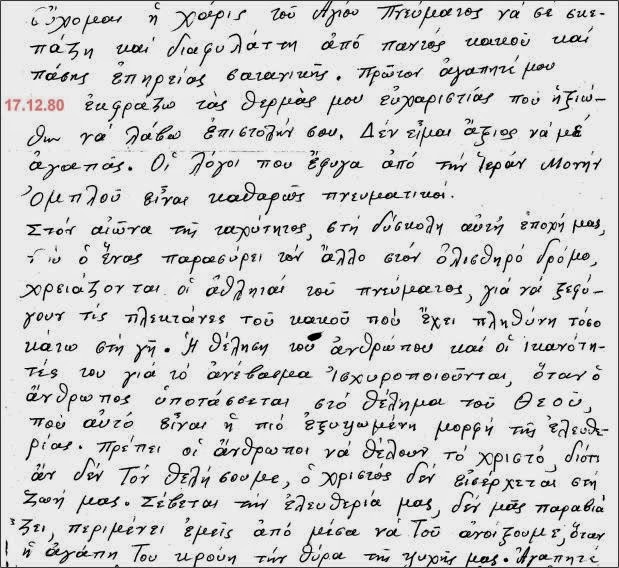 εὔχομαι ἡ χάρις τοῦ Ἁγίου Πνεύματος νά σέ σκε-
πάζη καί διαφυλάττη ἀπό παντός κακοῦ καί
πάσης ἐπηρείας σατανικῆς. Πρῶτον ἀγαπητέ μου
17.12.80 ἐκφράζω τάς θερμάς μου εὐχαριστίας πού ἠξιώ-
θην νά λάβω ἐπιστολήν σου. Δέν εἶμαι ἄξιος νά μέ
ἀγαπᾶς. Οἱ λόγοι που ἔφυγα ἀπό τήν Ἱεράν Μονήν
Ὀμπλοῦ εἶναι καθαρῶς πνευματικοί.
Στόν αἰῶνα τῆς ταχύτητος, στή δύσκολη αὐτή ἐποχή μας,
πού ὁ ἕνας παρασύρει τόν ἄλλο στόν ὀλισθηρό δρόμο,
χρειάζονται οἱ ἀθληταί τοῦ πνεύματος, γιά νά ξεφύ-
γουν τίς πλεκτάνες τοῦ κακοῦ πού ἔχει πληθύνη τόσο
κάτω στή γῆ. Ἡ θέληση τοῦ ἀνθρώπου καί οἱ ἱκανότη-
τές του γιά τό ἀνέβασμα ἰσχυροποιοῦνται, ὅταν ὁ
ἄνθρωπος ὑποτάσσεται στό θέλημα τοῦ Θεοῦ,
πού αὐτό εἶναι ἡ πιό ἐξυψωμένη μορφή τῆς ἐλευθε-
ρίας. Πρέπει οἱ ἄνθρωποι νά θέλουν τό χριστό, διότι
ἄν δέν Τόν θελήσουμε, ὁ χριστός δέν εἰσέρχεται στή
ζωή μας. Σέβεται τήν ἐλευθερία μας, δέν μᾶς παραβιά
ζει, περιμένει ἐμεῖς ἀπό μέσα νά Τοῦ ἀνοίξουμε, ὅταν
ἡ ἀγάπη Του κρούη τήν θύρα τῆς ψυχῆς μας. Ἀγαπητέ